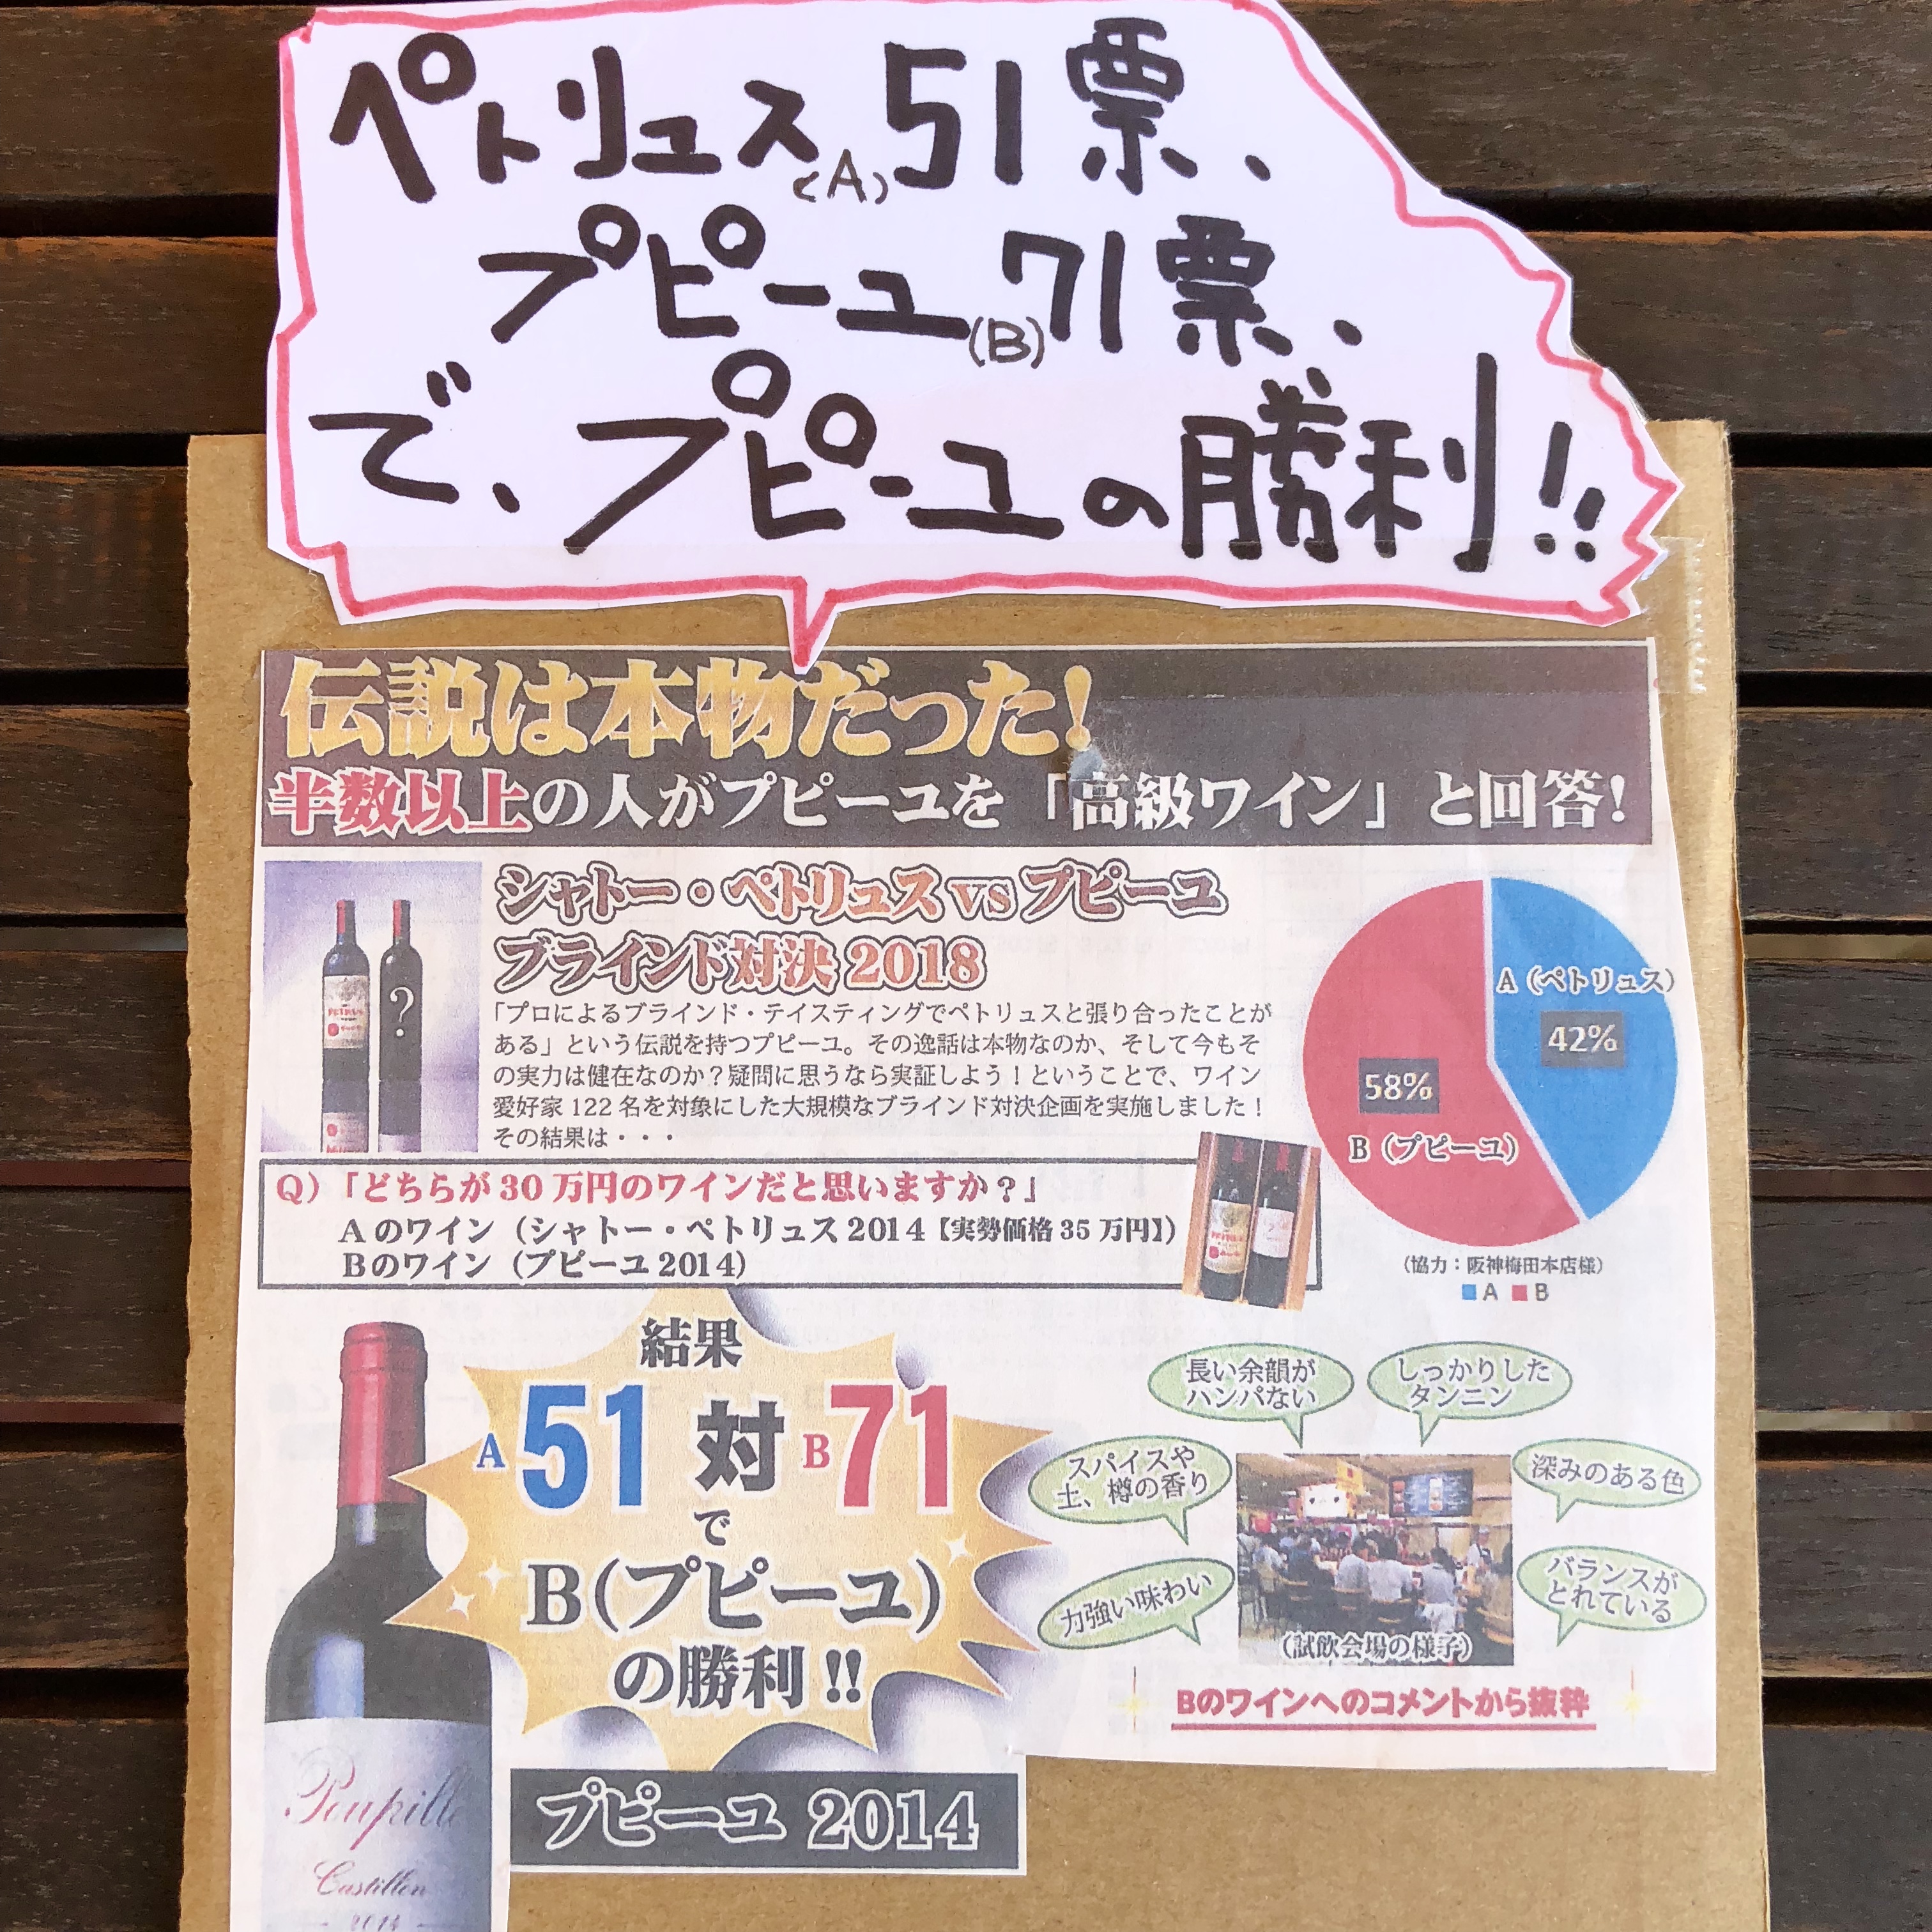 ペトリュス(A)51票、
プピーユ(B)71票、
で、プピーユの勝利!!
伝説は本物だった!
半数以上の人がプピーユを「高級ワイン」と回答!
シャトー・ペトリュス vs プピーユ
ブラインド対決 2018
「プロによるブラインド・テイスティングでペトリュスと張り合ったことが
ある」という伝説を持つプピーユ。その逸話は本物なのか、そして今もそ
の実力は健在なのか?疑問に思うなら実証しよう!ということで、ワイン
愛好家 122 名を対象にした大規模なブラインド対決企画を実施しました!
その結果は・・・
PETRUS
?
A(ペトリュス)
42%
58%
B(プピーユ)
(協力:阪神梅田本店様)
A B
Q)「どちらが 30 万円のワインだと思いますか?」
Aのワイン(シャトー・ペトリュス 2014【実勢価格 35 万円】)
Bのワイン(プピーユ 2014)
結果
A 51 対 B 71
で
B(プピーユ)
の勝利!!
長い余韻が
ハンパない
しっかりした
タンニン
スパイスや
土、樽の香り
深みのある色
力強い味わい
バランスが
とれている
(試飲会場の様子)
Bのワインへのコメントから抜粋
Poupille
Castillon
2014
プピーユ 2014